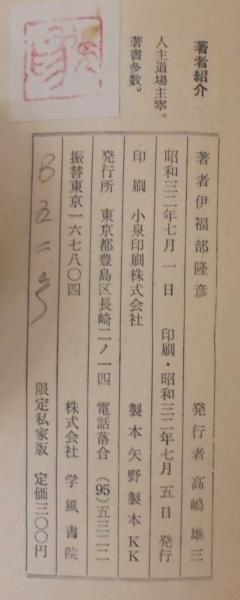 著者紹介
人主道場主宰。
著書参数。
著者 伊福部隆彦 発行者 高嶋雄三
昭和三二年七月一日 印刷・昭和三二年七月五日 発行
印刷 小泉印刷株式会社 製本 矢野製本KK
発行所 東京都豊島区長崎二ノ一四 電話落合(95)五三二二
振替東京一六七八〇四 株式会社 学風書院
B五二号 限定私家版 定価三〇〇円